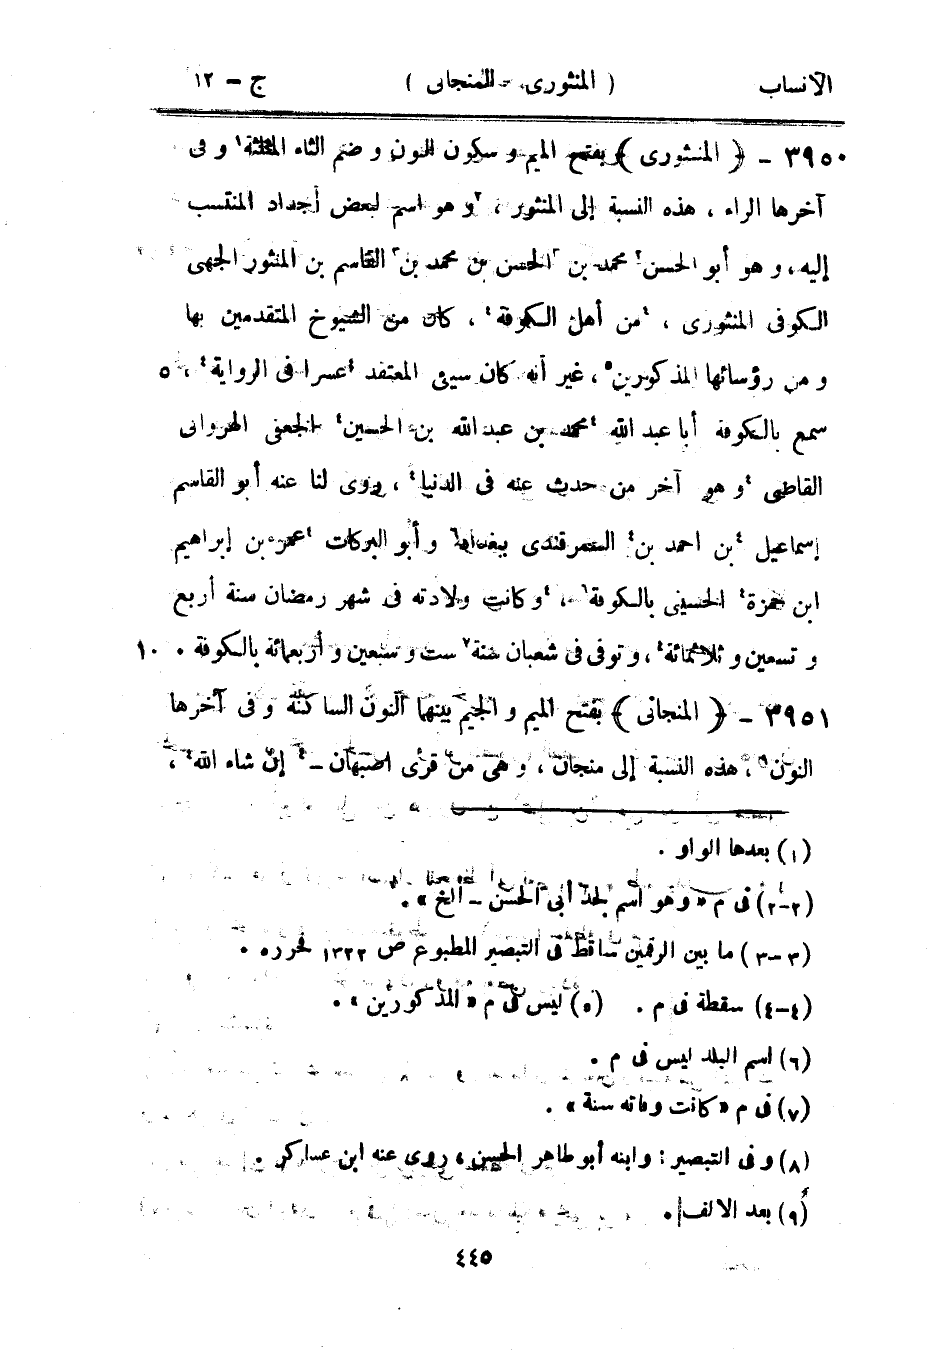 الانساب ( المنثورى - المنجانى ) ج - ١٢
٣٩٥٠ - ﴿ المنثورى ﴾ بفتح الميم و سكون النون و ضم الثاء المثلثة¹ و فى
آخرها الراء ، هذه النسبة إلى المنثور ، ²و هو اسم لبعض أجداد المنتسب
إليه ، و هو أبو الحسن² محمد بن ³الحسن بن محمد بن³ القاسم بن المنثور الجهنى
الكوفى المنثورى ، ⁴من أهل الكوفة⁴ ، كان من الشيوخ المتقدمين بها
و من رؤسائها المذكورين⁵ ، غير أنه كان سيئ المعتقد ⁴عسرا فى الرواية⁴ ، ٥
سمع بالكوفة أبا عبد الله ⁴محمد بن عبد الله بن الحسين⁴ الجعفى الهروانى
القاضى ⁴و هو آخر من حدث عنه فى الدنيا⁴ ، روى لنا عنه أبو القاسم
إسماعيل ⁴بن احمد بن⁴ السمرقندى ببغداد⁶ و أبو البركات ⁴عمر بن إبراهيم
ابن حمزة⁴ الحسينى بالكوفة⁶ ، ⁴و كانت ولادته فى شهر رمضان سنة أربع
و تسعين و ثلاثمائة⁴ ، و توفى فى شعبان سنة⁷ ست و سبعين و أربعمائة بالكوفة⁸ . ١٠
٣٩٥١ - ﴿ المنجانى ﴾ بفتح الميم و الجيم بينهما النون الساكنة و فى آخرها
النون⁹ ، هذه النسبة إلى منجان ، و هى من قرى اصبهان - ⁴إن شاء الله⁴ ،
(١) بعدها الواو .
(٢-٢) فى م « وهو اسم لجد أبى الحسن - الخ » .
(٣-٣) ما بين الرقمين ساقط فى التبصير المطبوع ص ١٣٢٢ فحرره .
(٤-٤) سقطة فى م . (٥) ليس فى م « المذكورين » .
(٦) اسم البلد ليس فى م .
(٧) فى م « كانت وفاته سنة » .
(٨) و فى التبصير : وابنه أبو طاهر الحسن ، روى عنه ابن عساكر .
(٩) بعد الالف .
٤٤٥